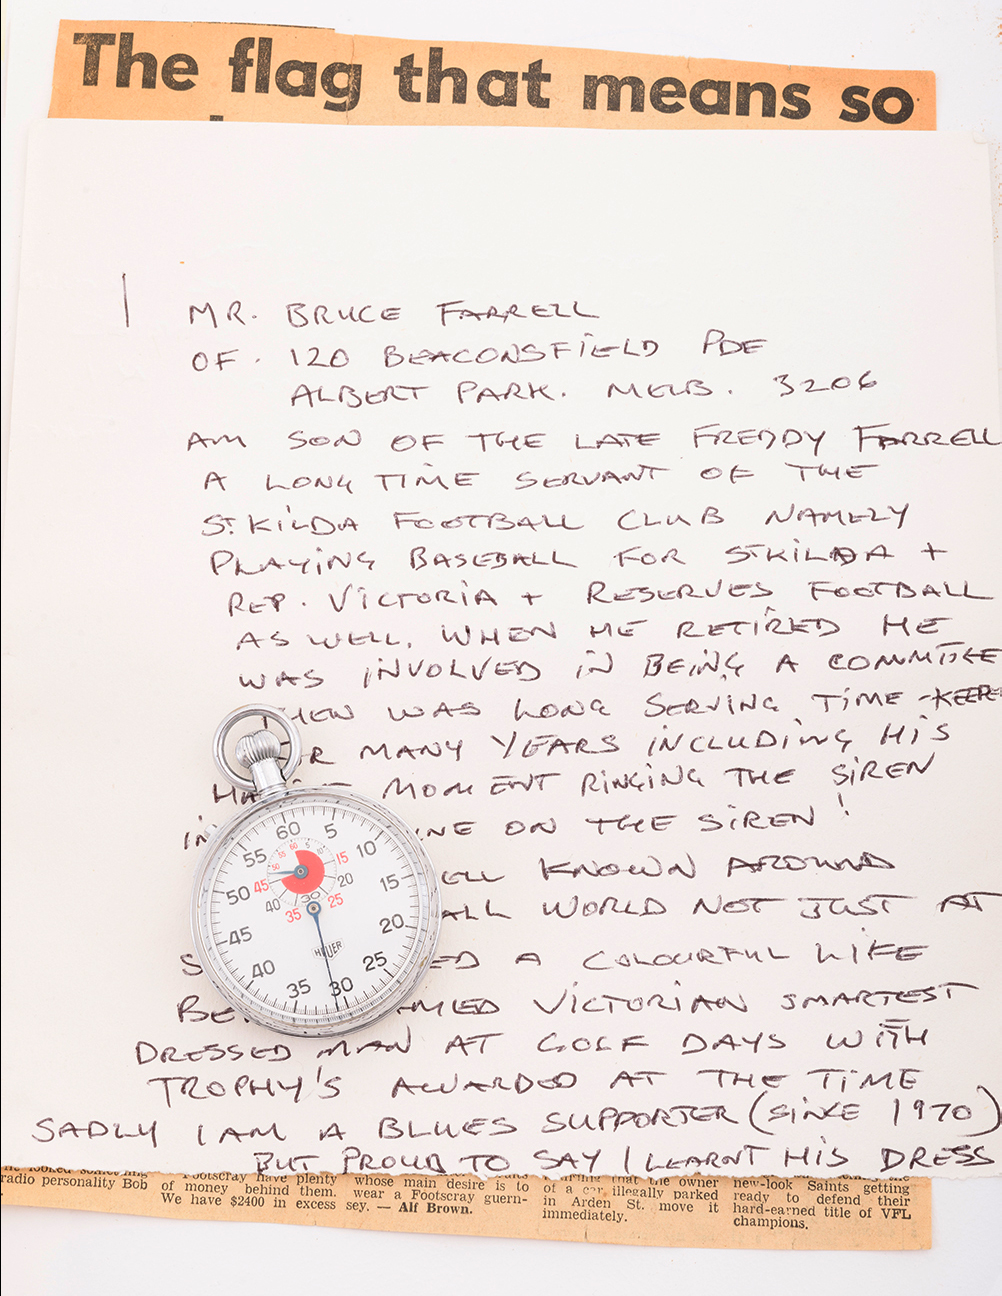 The flag that means so
I MR. BRUCE FARRELL
OF. 120 BEACONSFIELD PDE
ALBERT PARK. MELB. 3206
AM SON OF THE LATE FREDDY FARRELL
A LONG TIME SERVANT OF THE
ST. KILDA FOOTBALL CLUB NAMELY
PLAYING BASEBALL FOR ST KILDA +
REP. VICTORIA + RESERVES FOOTBALL
AS WELL. WHEN HE RETIRED HE
WAS INVOLVED IN BEING A COMMITTEE
THEN WAS LONG SERVING TIME-KEEPER
MANY YEARS INCLUDING HIS
MOMENT RINGING THE SIREN
ON THE SIREN!
KNOWN AROUND
WORLD NOT JUST AT
A COLOURFUL LIFE
VICTORIAN SMARTEST
DRESSED MAN AT GOLF DAYS WITH
TROPHY'S AWARDED AT THE TIME
SADLY I AM A BLUES SUPPORTER (SINCE 1970)
BUT PROUD TO SAY I LEARNT HIS DRESS
60 5 10 15 20 25 30 35 40 45 50 55
HEUER
radio personality Bob
Footscray have plenty
of money behind them.
We have $2400 in excess
whose main desire is to
wear a Footscray guern-
sey. — Alf Brown.
that the owner
of a car illegally parked
in Arden St. move it
immediately.
new-look Saints getting
ready to defend their
hard-earned title of VFL
champions.